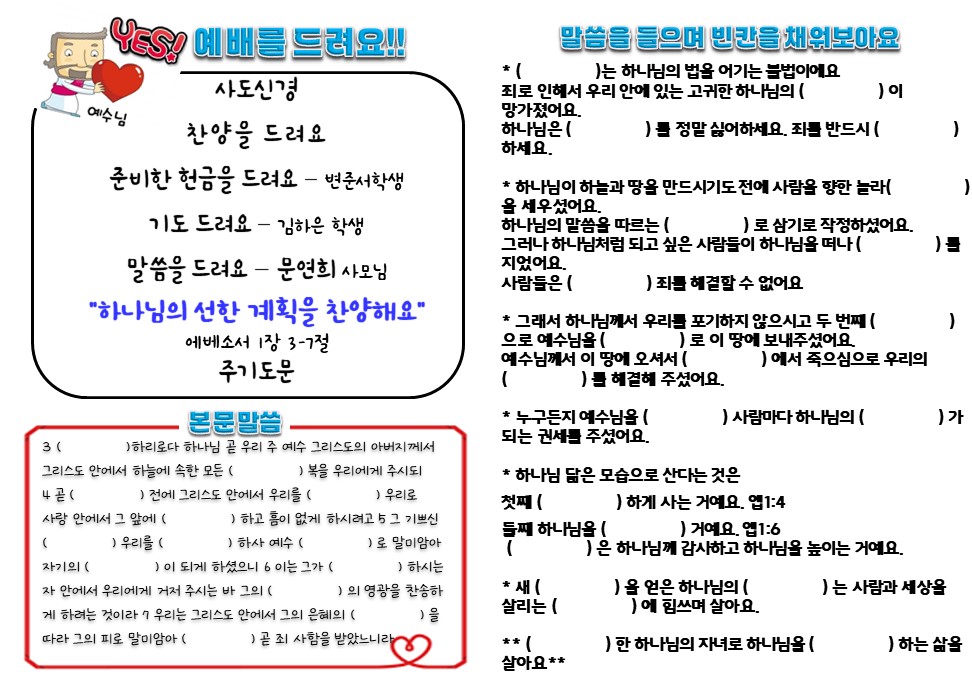 YES! 예배를 드려요!!
예수님
사도신경
찬양을 드려요
준비한 헌금을 드려요 – 변준서학생
기도 드려요 – 김하은 학생
말씀을 드려요 – 문연희 사모님
"하나님의 선한 계획을 찬양해요"
에베소서 1장 3-7절
주기도문
본문말씀
3 (          )하리로다 하나님 곧 우리 주 예수 그리스도의 아버지께서
그리스도 안에서 하늘에 속한 모든 (          ) 복을 우리에게 주시되
4 곧 (          ) 전에 그리스도 안에서 우리를 (          ) 우리로
사랑 안에서 그 앞에 (          ) 하고 흠이 없게 하시려고 5 그 기쁘신
(          ) 우리를 (          ) 하사 예수 (          ) 로 말미암아
자기의 (          ) 이 되게 하셨으니 6 이는 그가 (          ) 하시는
자 안에서 우리에게 거저 주시는 바 그의 (          ) 의 영광을 찬송하
게 하려는 것이라 7 우리는 그리스도 안에서 그의 은혜의 (          ) 을
따라 그의 피로 말미암아 (          ) 곧 죄 사함을 받았느니라
말씀을 들으며 빈칸을 채워보아요
* (          )는 하나님의 법을 어기는 불법이에요
죄로 인해서 우리 안에 있는 고귀한 하나님의 (          ) 이
망가졌어요.
하나님은 (          ) 를 정말 싫어하세요. 죄를 반드시 (          )
하세요.
* 하나님이 하늘과 땅을 만드시기도 전에 사람을 향한 놀라(          )
을 세우셨어요.
하나님의 말씀을 따르는 (          ) 로 삼기로 작정하셨어요.
그러나 하나님처럼 되고 싶은 사람들이 하나님을 떠나 (          ) 를
지었어요.
사람들은 (          ) 죄를 해결할 수 없어요
* 그래서 하나님께서 우리를 포기하지 않으시고 두 번째 (          )
으로 예수님을 (          ) 로 이 땅에 보내주셨어요.
예수님께서 이 땅에 오셔서 (          ) 에서 죽으심으로 우리의
(          ) 를 해결해 주셨어요.
* 누구든지 예수님을 (          ) 사람마다 하나님의 (          ) 가
되는 권세를 주셨어요.
* 하나님 닮은 모습으로 산다는 것은
첫째 (          ) 하게 사는 거예요. 엡1:4
둘째 하나님을 (          ) 거예요. 엡1:6
(          ) 은 하나님께 감사하고 하나님을 높이는 거예요.
* 새 (          ) 을 얻은 하나님의 (          ) 는 사람과 세상을
살리는 (          ) 에 힘쓰며 살아요.
** (          ) 한 하나님의 자녀로 하나님을 (          ) 하는 삶을
살아요**